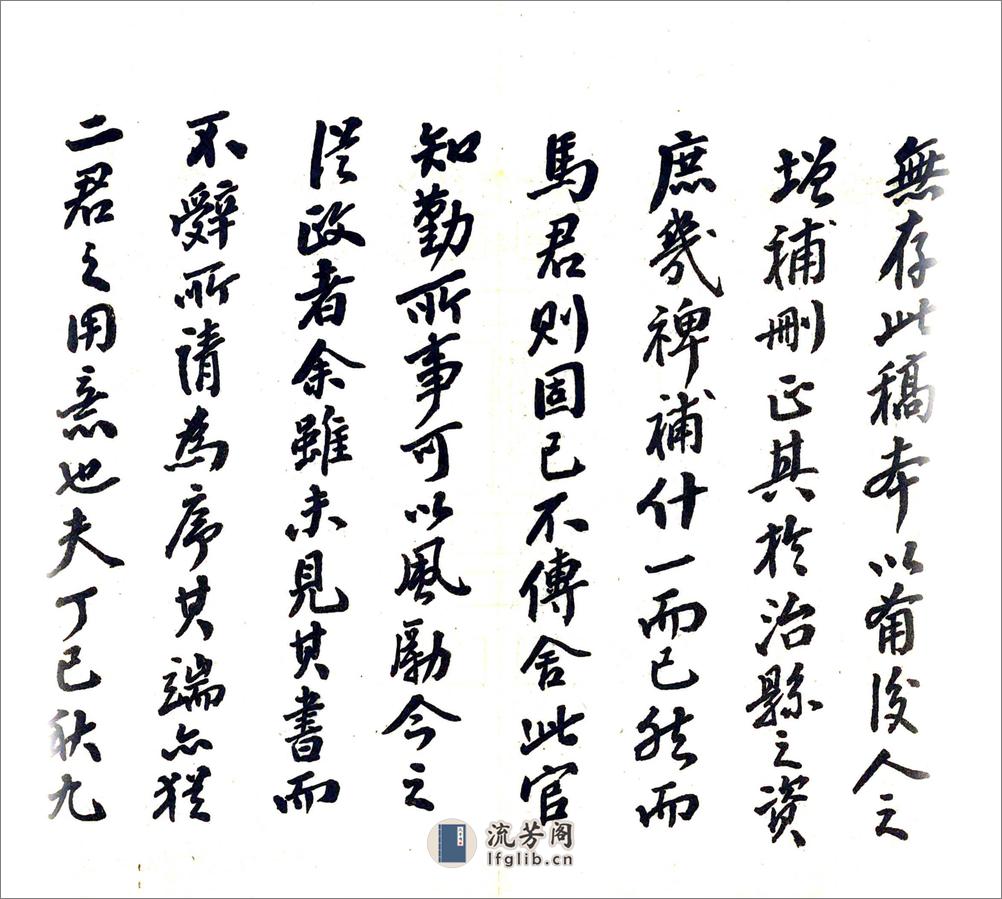 無存此稿本以備後人之
增補刪正其於治縣之資
庶幾裨補什一而已然而
馬君則固已不傳舍此官
知勤所事可以風勵今之
從政者余雖未見其書而
不辭所請為序其端亦猶
二君之用意也夫丁巳秋九
流芳阁
lfglib.cn